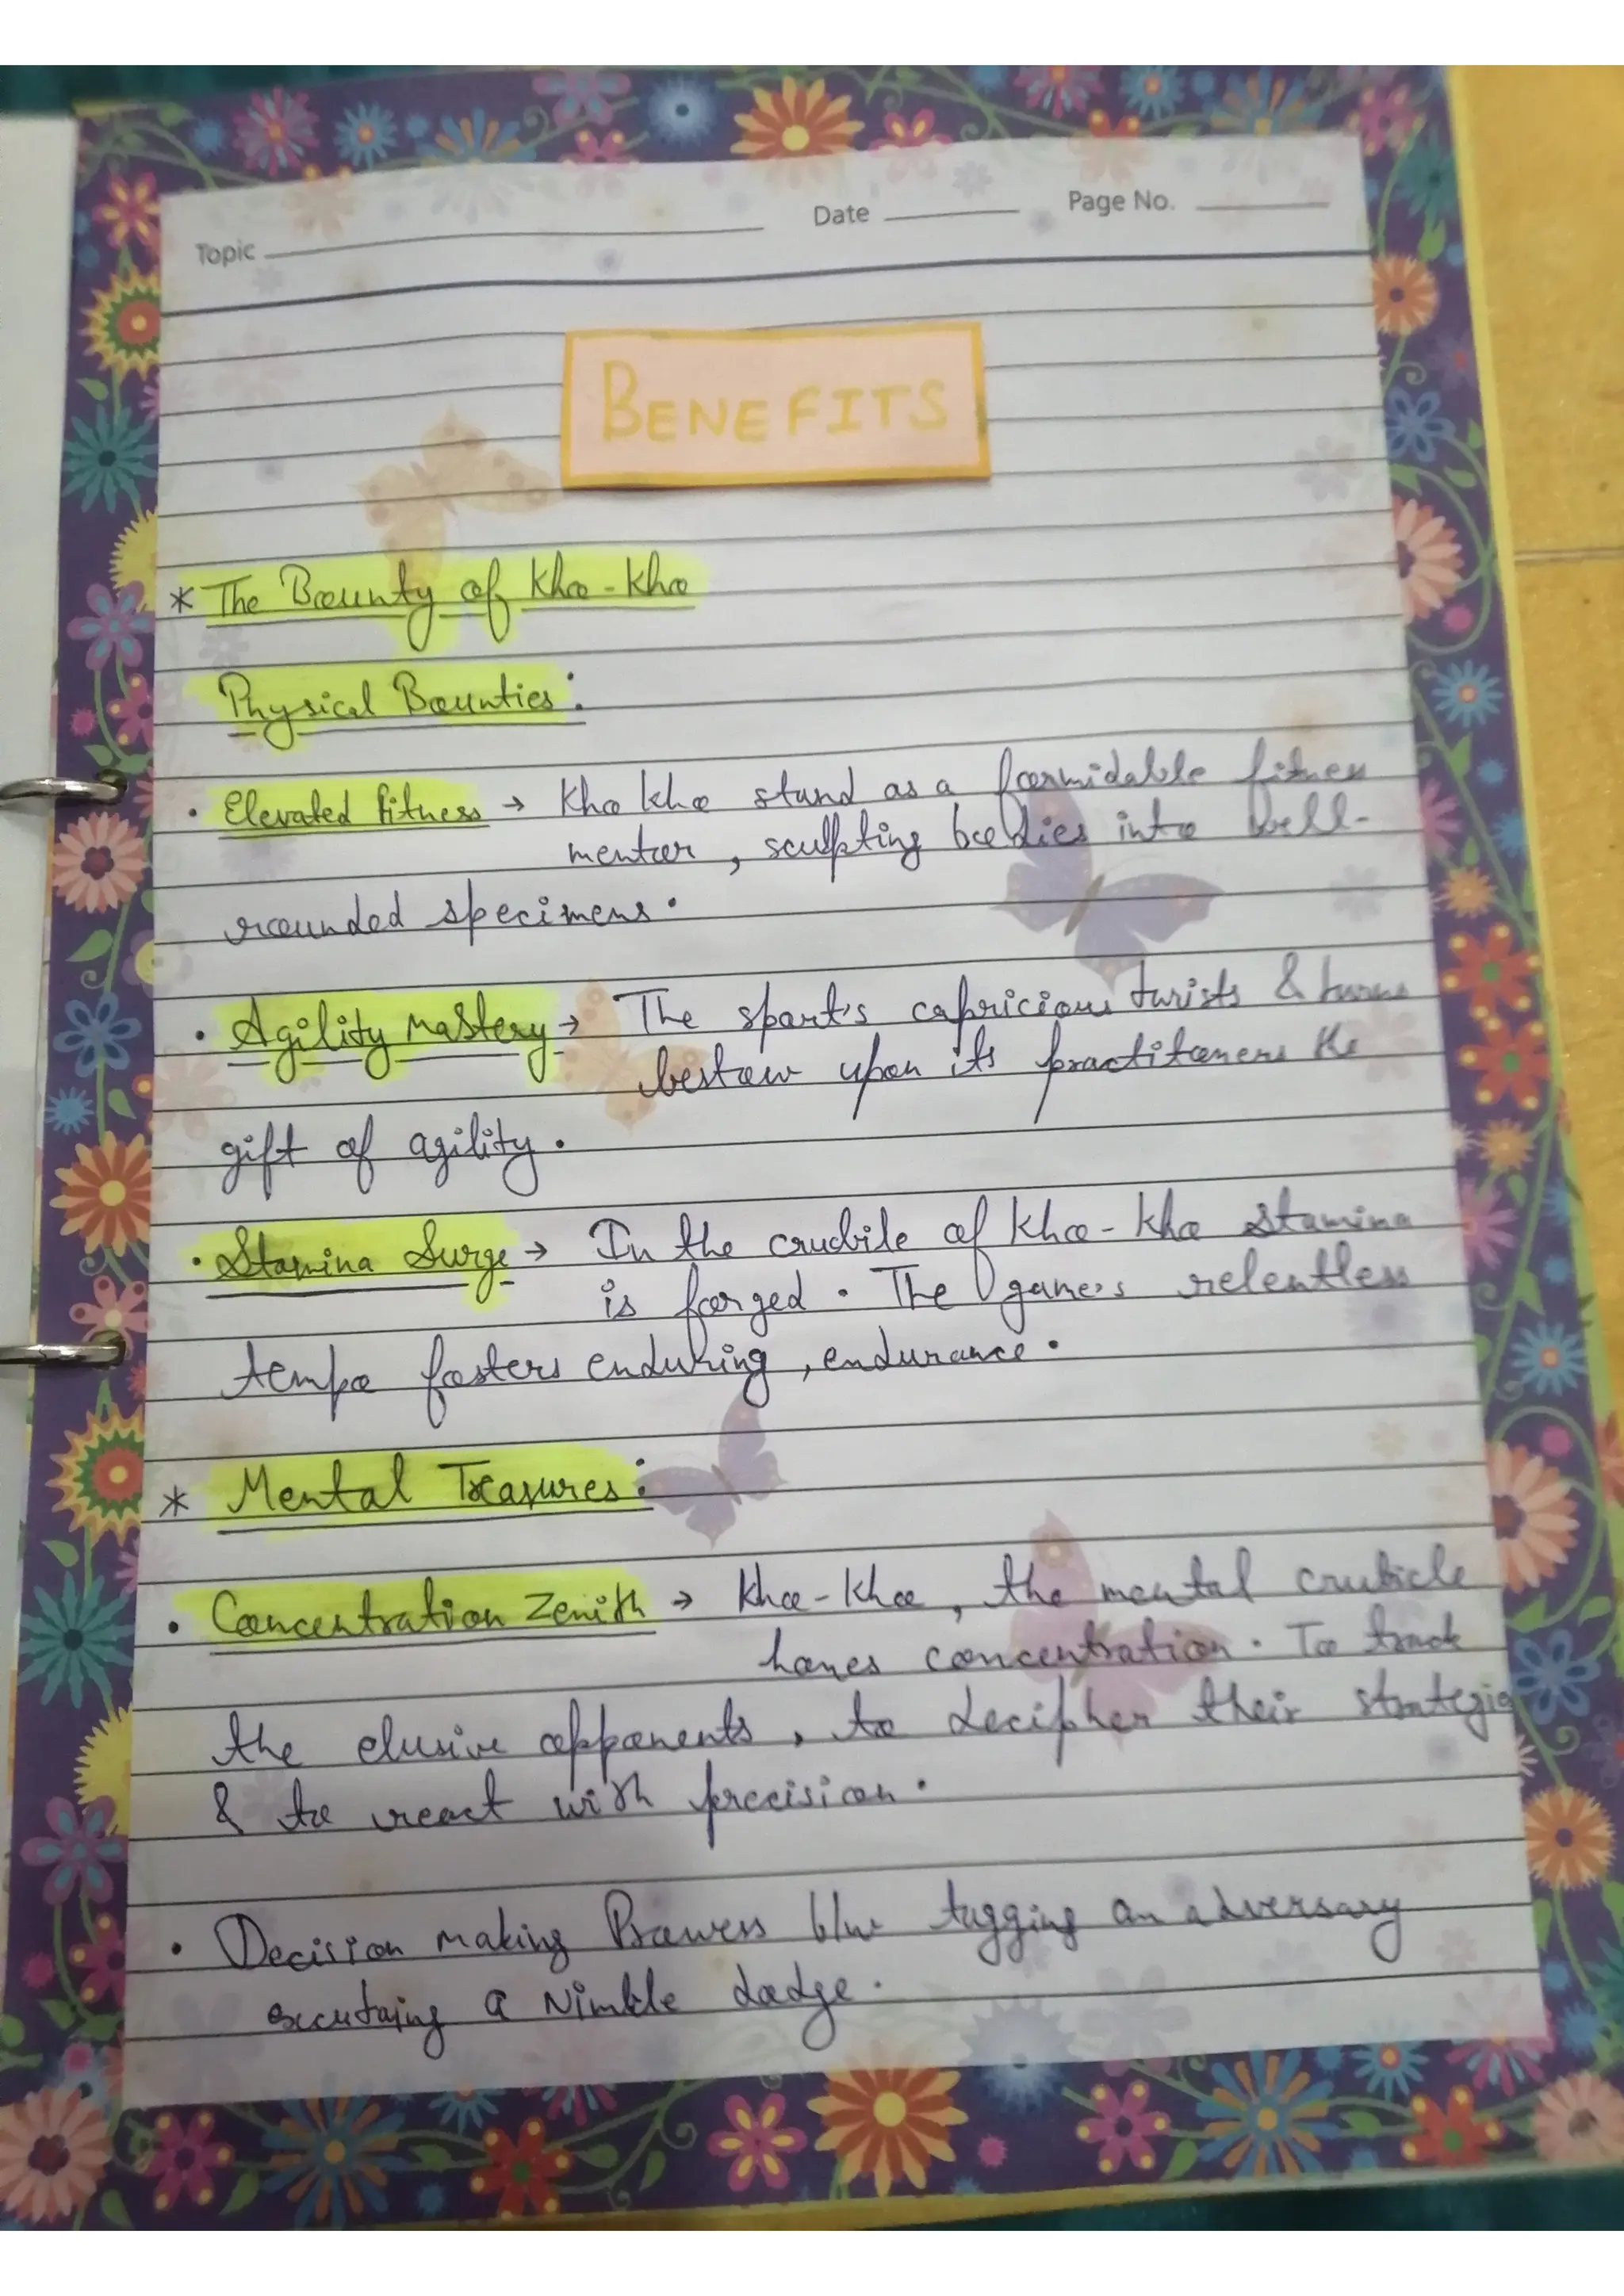 Topic Date Page No.
BENEFITS
* The Bounty of Kho-Kho
Physical Bounties:
• Elevated fitness → Kho kho stand as a formidable fitness
mentor, sculpting bodies into well-
rounded specimens.
• Agility Mastery → The sport's capricious twists & turns
bestow upon its practitoners the
gift of agility.
• Stamina Surge → In the crucbile of Kho-Kho Stamina
is forged. The game's relentless
tempo fosters enduring, endurance.
* Mental Treasures:
• Concentration Zenith → Kho-Kho, the mental crubicle
hones concentration. To track
the elusive opponents, to decipher their strategie
& to react with precision.
• Decision making Prowess b/w tagging an adversary
a Nimble dodge.